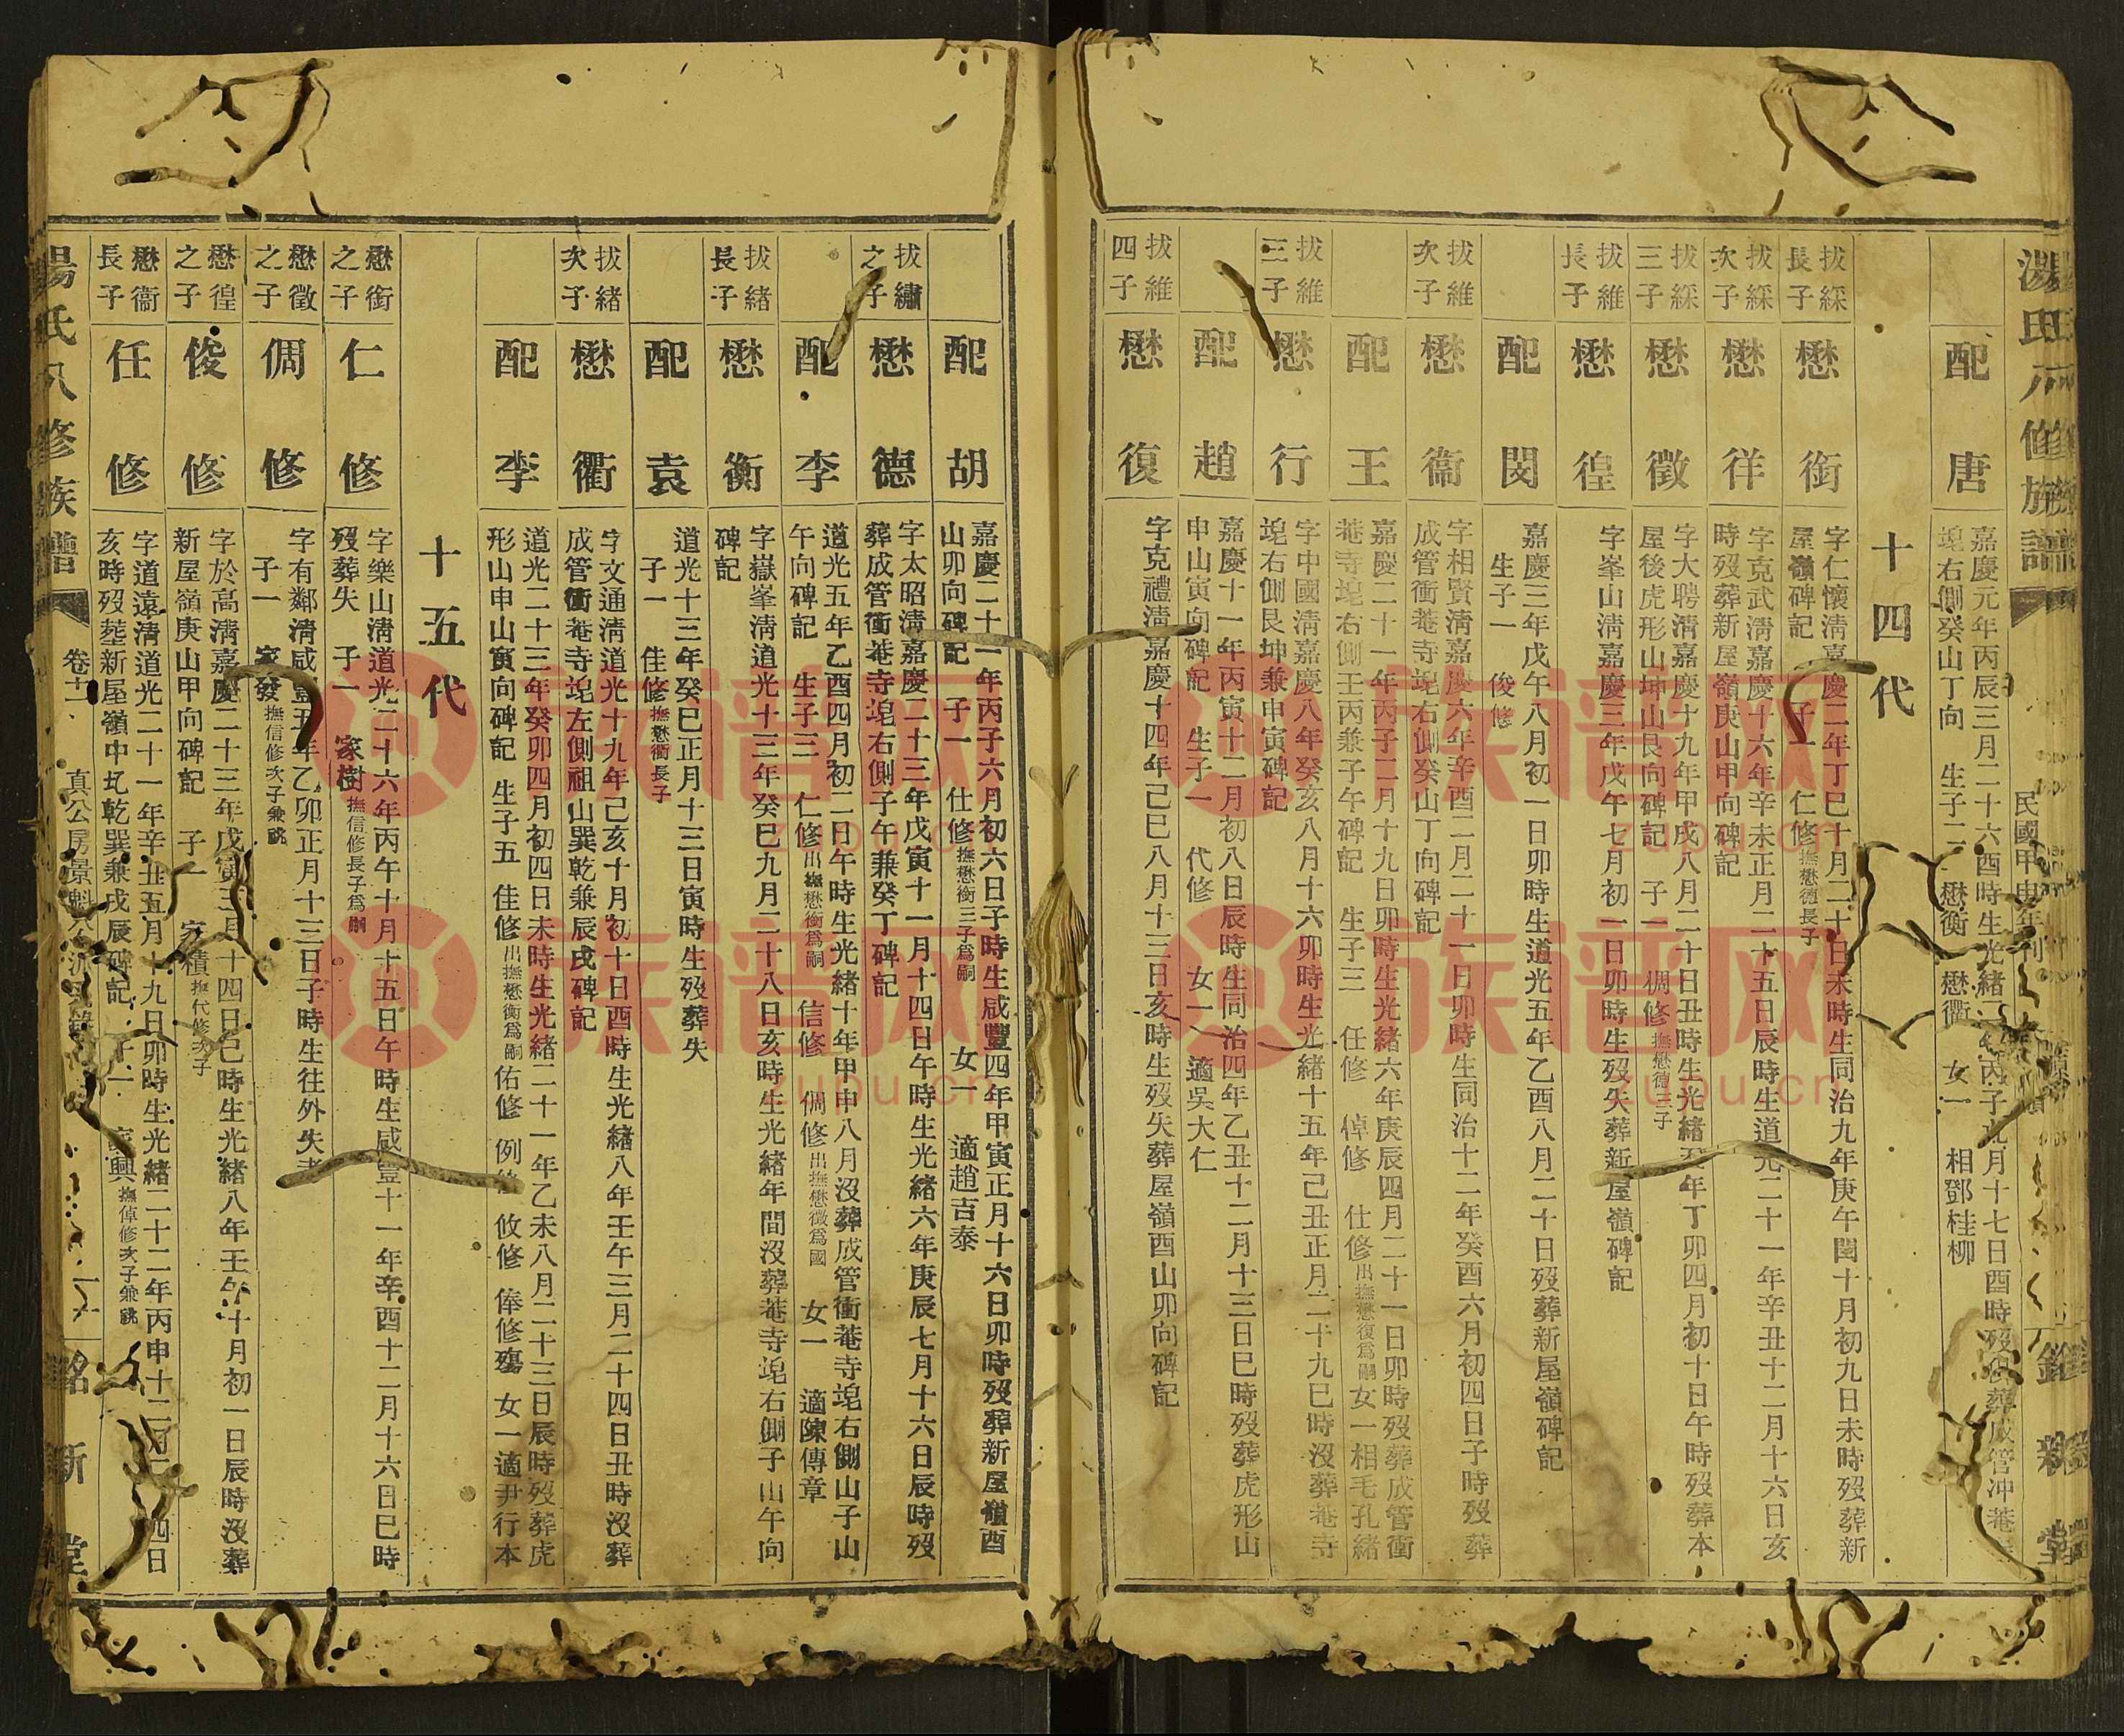 民國甲申年刊
配唐
嘉慶元年丙辰三月二十六酉時生光緒二年丙子九月十七日酉時歿
塊右側癸山丁向 生子二 懋衡 懋衢 女一 相鄧桂柳
十四代
拔綵長子
懋銜
字仁懷淸嘉慶二年丁巳十月二十日未時生同治九年庚午閏十月初九日未時歿葬新
屋嶺碑記 子一 仁修撫懋德長子
拔綵次子
懋徉
字克武淸嘉慶十六年辛未正月二十五日辰時生道光二十一年辛丑十二月十六日亥
時歿葬新屋嶺庚山甲向碑記
拔綵三子
懋徵
字大聘淸嘉慶十九年甲戌八月二十日丑時生光緒 年丁卯四月初十日午時歿葬本
屋後虎形山坤山艮向碑記 子一 倜修撫懋德三子
拔維長子
懋徨
字峯山淸嘉慶三年戊午七月初一日卯時生歿失葬新屋嶺碑記
配閔
嘉慶三年戊午八月初一日卯時生道光五年乙酉八月二十日歿葬新屋嶺碑記
生子一 俊修
拔維次子
懋衞
字相賢淸嘉慶六年辛酉二月二十一日卯時生同治十二年癸酉六月初四日子時歿葬
成管衝菴寺塊右側癸山丁向碑記
配王
嘉慶二十一年丙子二月十九日卯時生光緒六年庚辰四月二十一日卯時歿葬成管衝
菴寺塊右側壬丙兼子午碑記 生子三 任修 倬修 仕修出撫懋復爲嗣 女一相毛孔緒
拔維三子
懋行
字中國淸嘉慶八年癸亥八月十六卯時生光緒十五年己丑正月二十九巳時沒葬菴寺
塊右側艮坤兼申寅碑記
配趙
嘉慶十一年丙寅十二月初八日辰時生同治四年乙丑十二月十三日巳時歿葬虎形山
申山寅向碑記 生子一 代修 女一 適吳大仁
拔維四子
懋復
字克禮淸嘉慶十四年己巳八月十三日亥時生歿失葬屋嶺酉山卯向碑記
配胡
嘉慶二十一年丙子六月初六日子時生咸豐四年甲寅正月十六日卯時歿葬新屋嶺酉
山卯向碑記 子一 仕修撫懋衞三子爲嗣 女一 適趙吉泰
拔繡之子
懋德
字太昭淸嘉慶二十三年戊寅十一月十四日午時生光緒六年庚辰七月十六日辰時歿
葬成管衝菴寺塊右側子午兼癸丁碑記
配李
道光五年乙酉四月初二日午時生光緒十年甲申八月沒葬成管衝菴寺塊右側山子山
午向碑記 生子三 仁修出撫懋銜爲嗣 信修 倜修出撫懋徵爲國 女一 適陳傳章
拔緒長子
懋衡
字嶽峯淸道光十三年癸巳九月二十八日亥時生光緒年間沒葬菴寺塊右側子山午向
碑記
配袁
道光十三年癸巳正月十三日寅時生歿葬失
子一 佳修撫懋衢長子
拔緒次子
懋衢
字文通淸道光十九年己亥十月初十日酉時生光緒八年壬午三月二十四日丑時沒葬
成管衝菴寺塊左側祖山巽乾兼辰戌碑記
配李
道光二十三年癸卯四月初四日未時生光緒二十一年乙未八月二十三日辰時歿葬虎
形山申山寅向碑記 生子五 佳修出撫懋衡爲嗣 佑修 例修 攸修 俸修殤 女一適尹行本
十五代
懋銜之子
仁修
字樂山淸道光二十六年丙午十月十五日午時生咸豐十一年辛酉十二月十六日巳時
歿葬失 子一 家樹撫信修長子爲嗣
懋徵之子
倜修
字有鄰淸咸豐五年乙卯正月十三日子時生往外失考
子一 家發撫信修次子兼祧
懋徨之子
俊修
字於高淸嘉慶二十三年戊寅三月十四日巳時生光緒八年壬午十月初一日辰時沒葬
新屋嶺庚山甲向碑記 子一 家積撫代修次子
懋衞長子
任修
字道遠淸道光二十一年辛丑五月十九日卯時生光緒二十二年丙申十二月 四日
亥時歿塟新屋嶺中圠乾巽兼戌辰碑記 子一 家興撫倬修次子兼祧
湯氏八修族譜 卷十一 真公房景魁公派 銘新堂